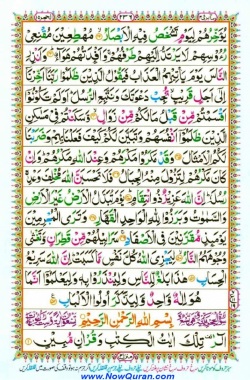 ٢٣٦
يُؤَخِّرُهُمْ لِيَوْمٍ تَشْخَصُ فِيْهِ الْاَبْصَارُ مُهْطِعِيْنَ مُقْنِعِيْ
رُءُوْسِهِمْ لَا يَرْتَدُّ اِلَيْهِمْ طَرْفُهُمْ وَاَفْـِٕدَتُهُمْ هَوَآءٌ وَاَنْذِرِ
النَّاسَ يَوْمَ يَاْتِيْهِمُ الْعَذَابُ فَيَقُوْلُ الَّذِيْنَ ظَلَمُوْا رَبَّنَآ اَخِّرْنَآ
اِلٰٓى اَجَلٍ قَرِيْبٍ نُّجِبْ دَعْوَتَكَ وَنَتَّبِعِ الرُّسُلَ اَوَلَمْ تَكُوْنُوْٓا
اَقْسَمْتُمْ مِّنْ قَبْلُ مَا لَكُمْ مِّنْ زَوَالٍ وَّسَكَنْتُمْ فِيْ مَسٰكِنِ
الَّذِيْنَ ظَلَمُوْٓا اَنْفُسَهُمْ وَتَبَيَّنَ لَكُمْ كَيْفَ فَعَلْنَا بِهِمْ وَضَرَبْنَا
لَكُمُ الْاَمْثَالَ وَقَدْ مَكَرُوْا مَكْرَهُمْ وَعِنْدَ اللّٰهِ مَكْرُهُمْ وَاِنْ
كَانَ مَكْرُهُمْ لِتَزُوْلَ مِنْهُ الْجِبَالُ فَلَا تَحْسَبَنَّ اللّٰهَ مُخْلِفَ وَعْدِهٖ
رُسُلَهٗ اِنَّ اللّٰهَ عَزِيْزٌ ذُو انْتِقَامٍ يَوْمَ تُبَدَّلُ الْاَرْضُ غَيْرَ الْاَرْضِ
وَالسَّمٰوٰتُ وَبَرَزُوْا لِلّٰهِ الْوَاحِدِ الْقَهَّارِ وَتَرَى الْمُجْرِمِيْنَ
يَوْمَئِذٍ مُّقَرَّنِيْنَ فِي الْاَصْفَادِ سَرَابِيْلُهُمْ مِّنْ قَطِرَانٍ وَّتَغْشٰى
وُجُوْهَهُمُ النَّارُ لِيَجْزِيَ اللّٰهُ كُلَّ نَفْسٍ مَّا كَسَبَتْ اِنَّ اللّٰهَ سَرِيْعُ
الْحِسَابِ هٰذَا بَلٰغٌ لِّلنَّاسِ وَلِيُنْذَرُوْا بِهٖ وَلِيَعْلَمُوْٓا اَنَّمَا
هُوَ اِلٰهٌ وَّاحِدٌ وَّلِيَذَّكَّرَ اُولُوا الْاَلْبَابِ
بِسْمِ اللّٰهِ الرَّحْمٰنِ الرَّحِيْمِ
الٓرٰ تِلْكَ اٰيٰتُ الْكِتٰبِ وَقُرْاٰنٍ مُّبِيْنٍ
www.NowQuran.com